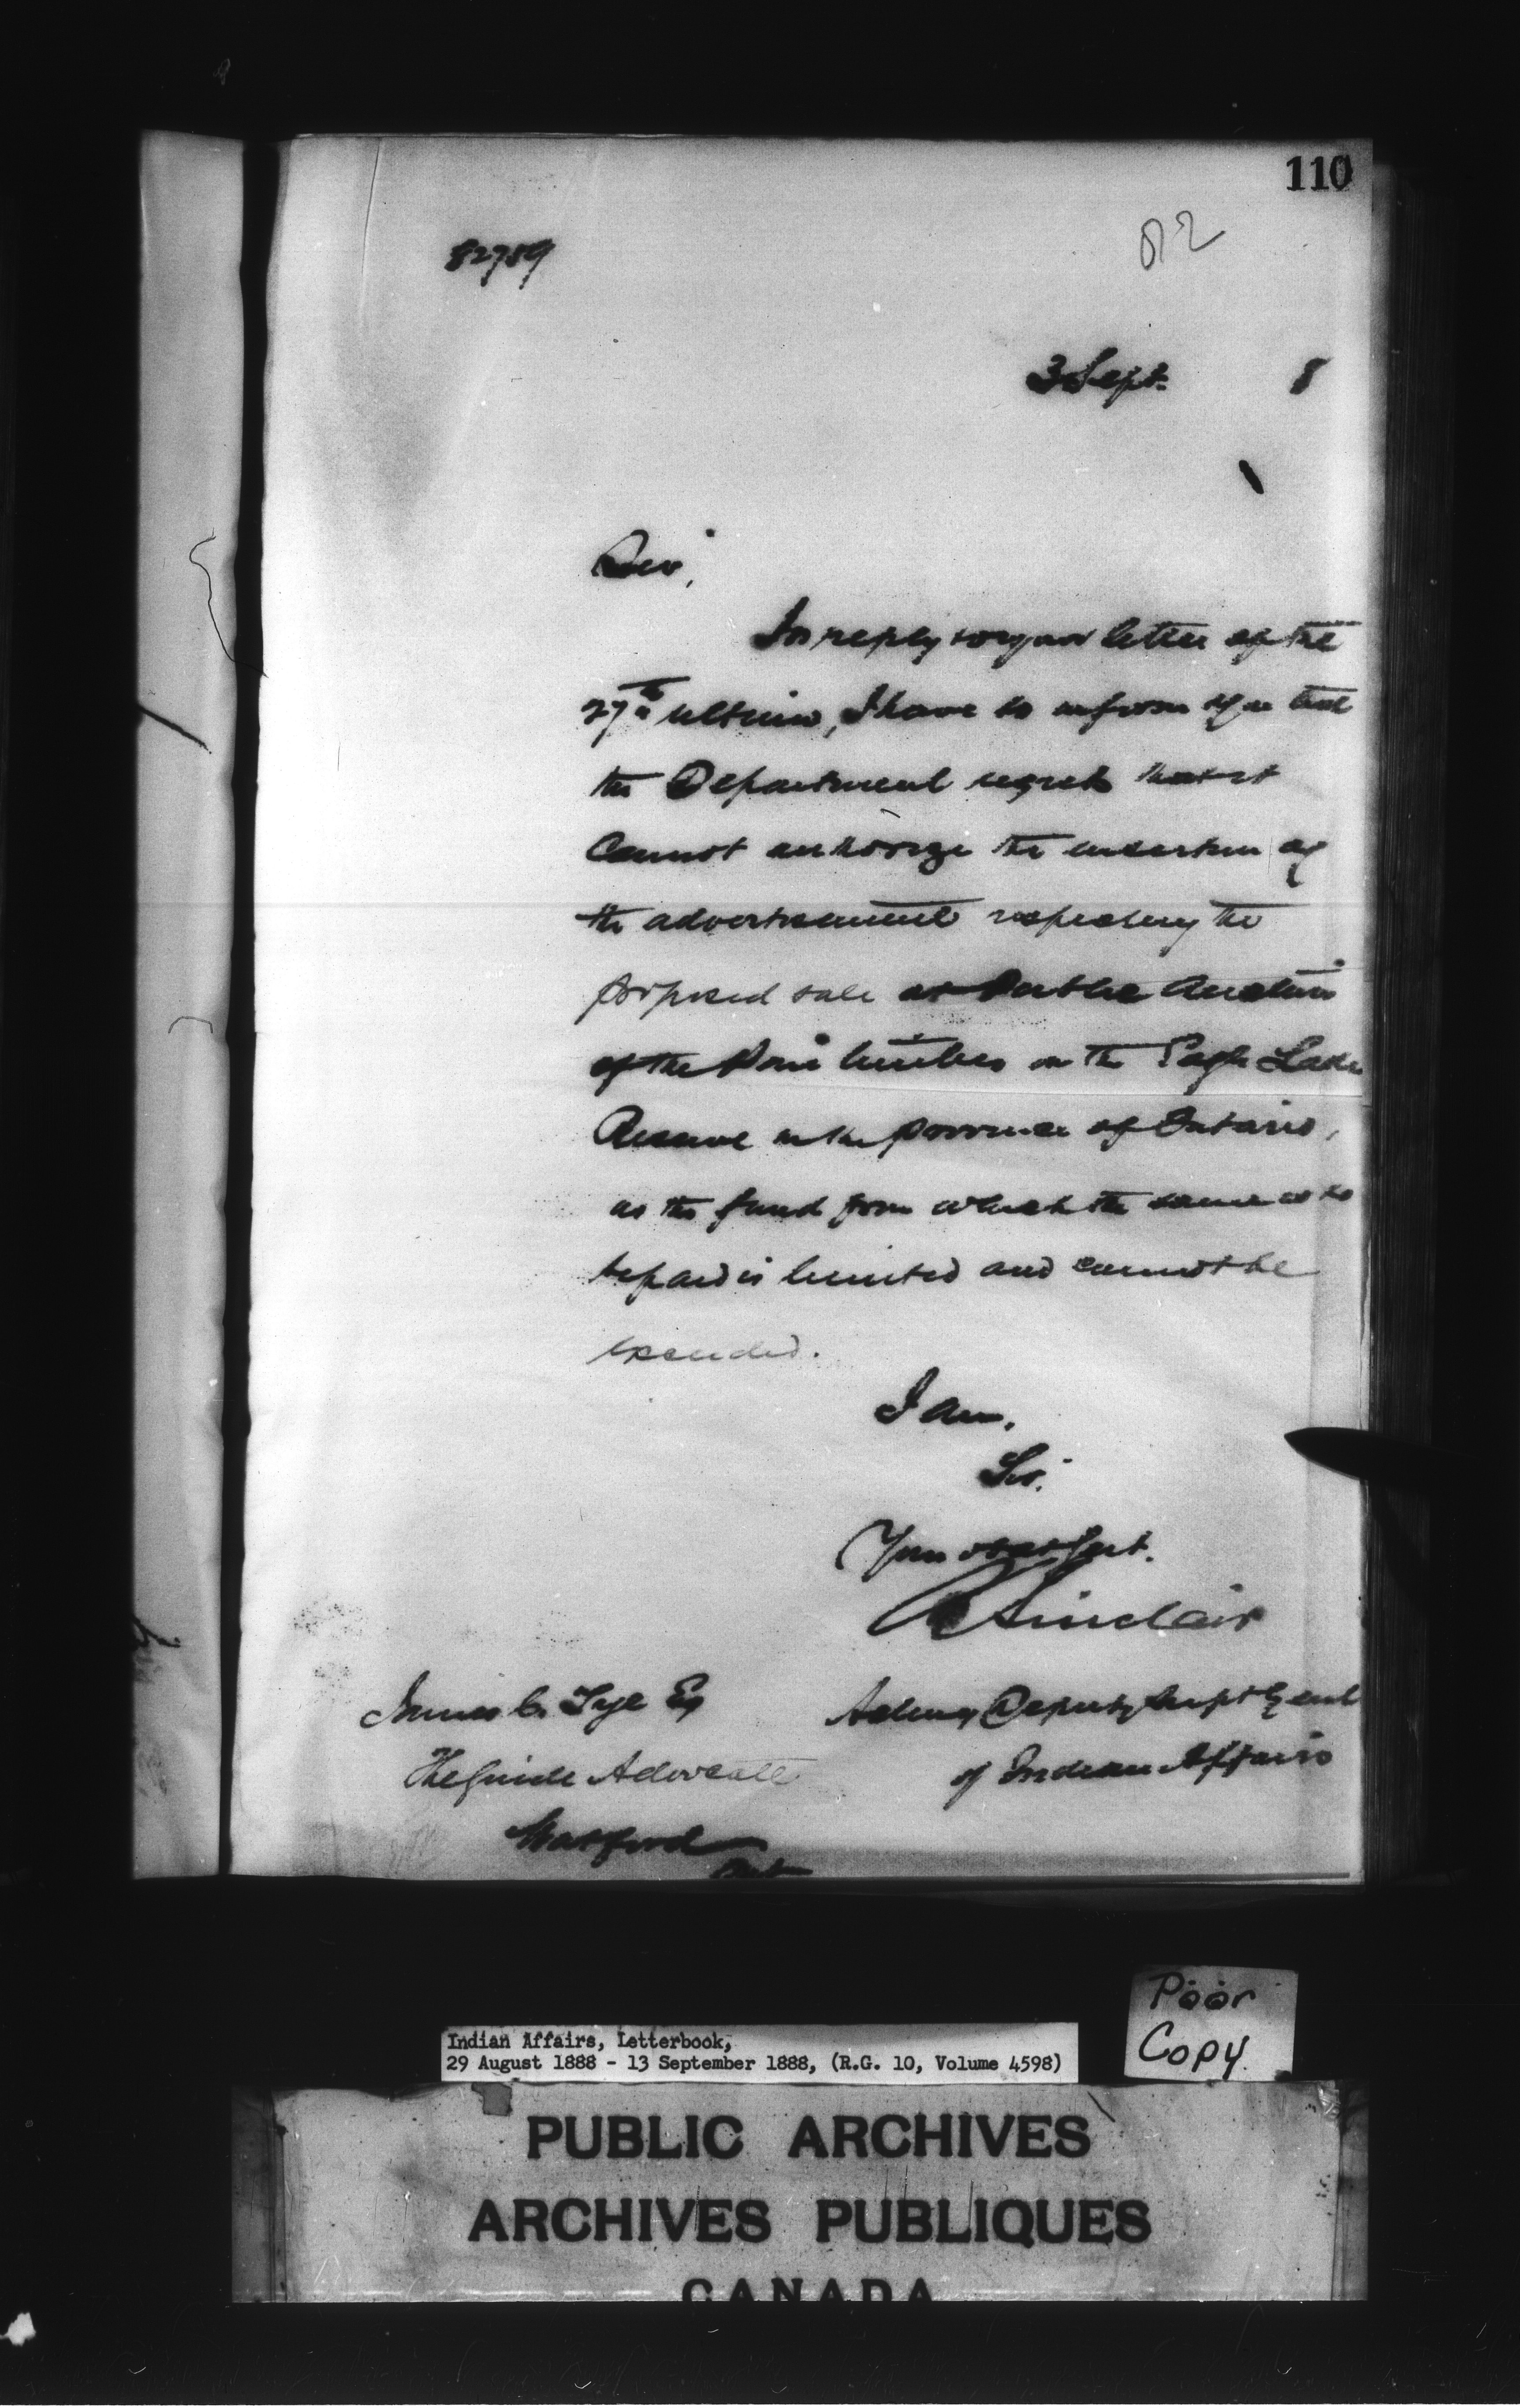 110
82789
3 Sept. 8
Sir,
In reply to your letter of the
27th ultimo, I have to inform you that
the Department regrets that it
cannot authorize the insertion of
the advertisement respecting the
proposed sale at Public Auction
of the Pine timber on the Eagle Lake
Reserve in the province of Ontario,
as the fund from which the same is to
be paid is limited and cannot be
exceeded.
I am,
Sir,
Your obdt Servt.
R Sinclair
Acting Deputy Supt Genl
of Indian Affairs
James C. Tye Eq
The Guide Advocate
Watford
Ont
Poor
Copy.
Indian Affairs, Letterbook,
29 August 1888 - 13 September 1888, (R.G. 10, Volume 4598)
PUBLIC ARCHIVES
ARCHIVES PUBLIQUES
CANADA